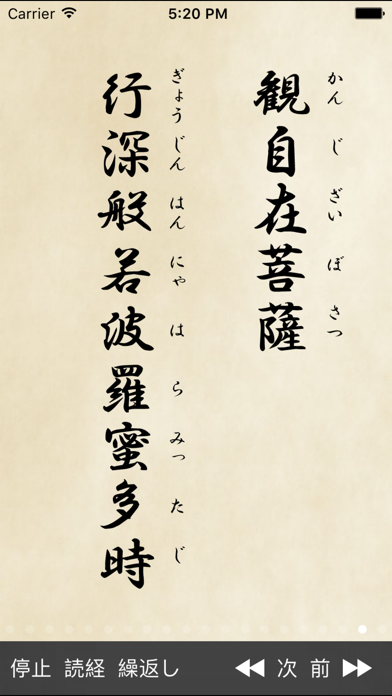 Carrier 5:20 PM
観自在菩薩
かん じ ざい ぼ さつ
行深般若波羅蜜多時
ぎょう じん はん にゃ は ら みっ た じ
停止 読経 繰返し 次 前